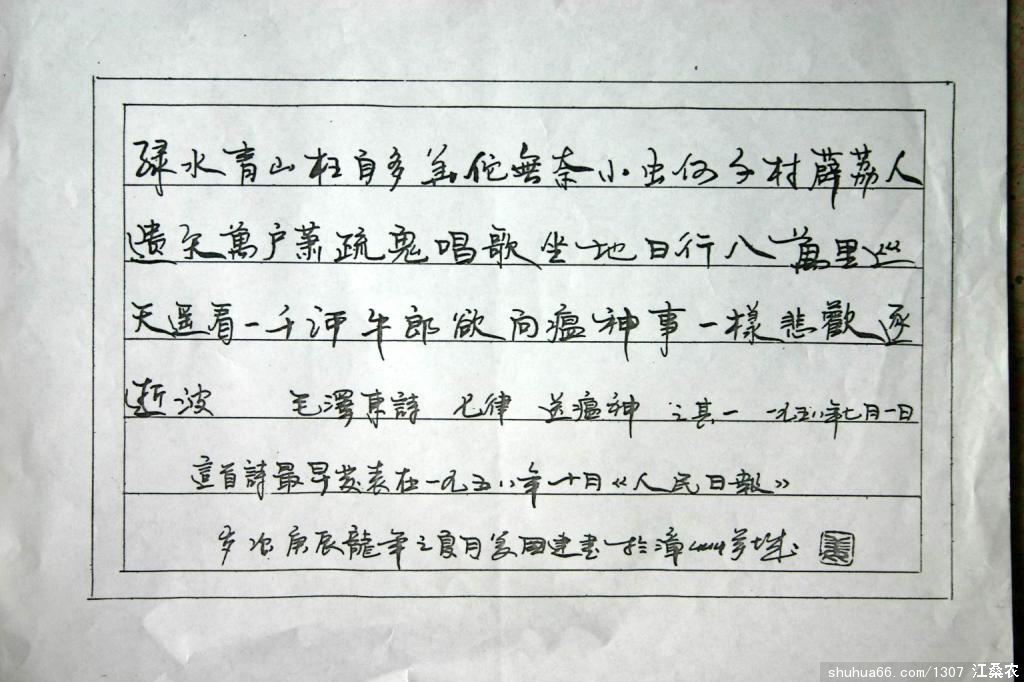 绿水青山枉自多華佗無奈小虫何千村薜荔人
遗矢萬户萧疏鬼唱歌坐地日行八萬里巡
天遥看一千河牛郎欲问瘟神事一樣悲歡逐
逝波 毛澤東詩 七律 送瘟神 之其一 一九五八年七月一日
這首詩最早发表在一九五八年十月《人民日報》
岁次庚辰龍年之夏月国建书於漳州芗城
shuhua66.com/1307 江桑农